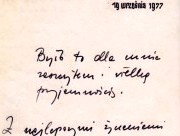 19 września 1977
Było to dla mnie
zaszczytem i wielką
przyjemnością.
Z najlepszymi życzeniami